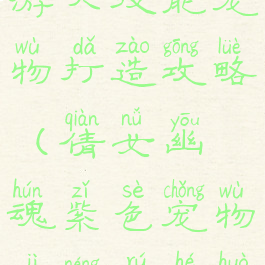 wù dǎ zào gōng lüè
物打造攻略
qiàn nǚ yōu
(倩女幽
hún zǐ sè chǒng wù
魂紫色宠物
jì néng rú hé huò